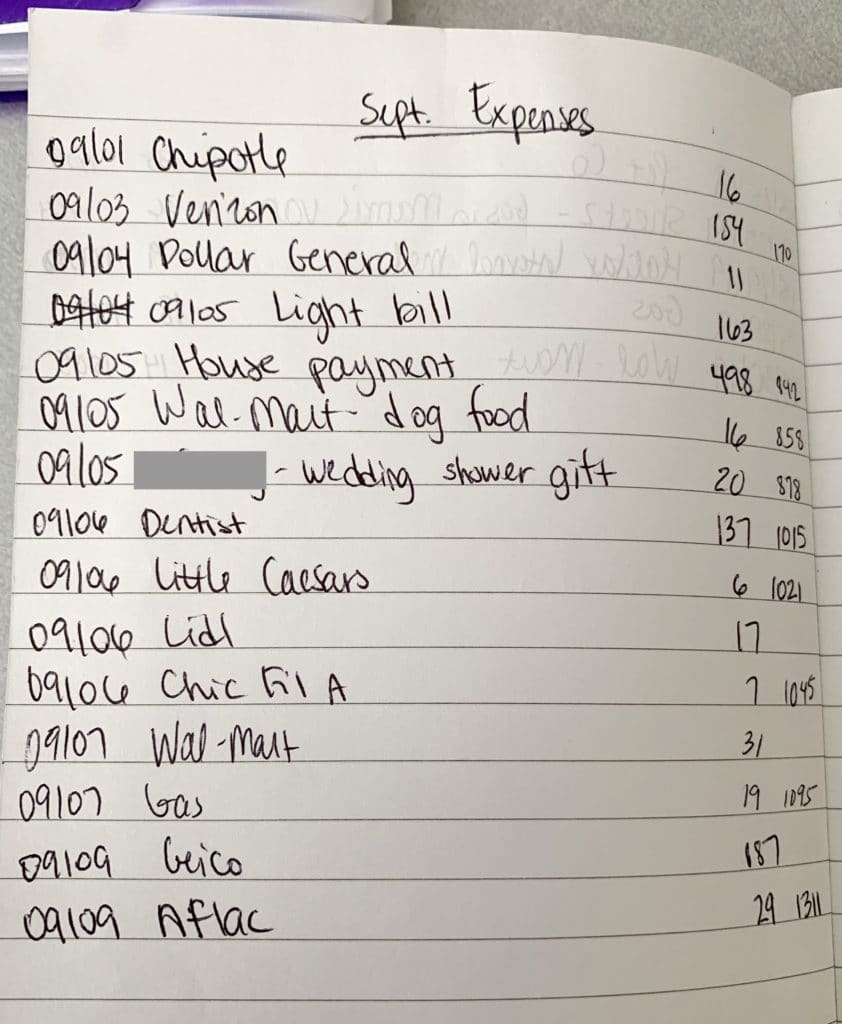 Sept. Expenses
09/01 Chipotle 16
09/03 Verizon 154 170
09/04 Dollar General 11
09/04 09/05 Light bill 163
09/05 House payment 498 842
09/05 Wal-Mart- dog food 16 858
09/05 - wedding shower gift 20 878
09/06 Dentist 137 1015
09/06 Little Caesars 6 1021
09/06 Lidl 17
09/06 Chic Fil A 7 1045
09/07 Wal-Mart 31
09/07 Gas 19 1095
09/09 Geico 187
09/09 Aflac 29 1311